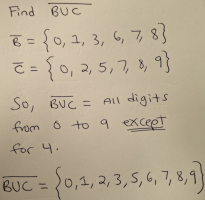 Find B̅U̅C̅
B̅ = {0, 1, 3, 6, 7, 8}
C̅ = {0, 2, 5, 7, 8, 9}
So, B̅U̅C̅ = All digits
from 0 to 9 except
for 4.
B̅U̅C̅ = {0, 1, 2, 3, 5, 6, 7, 8, 9}